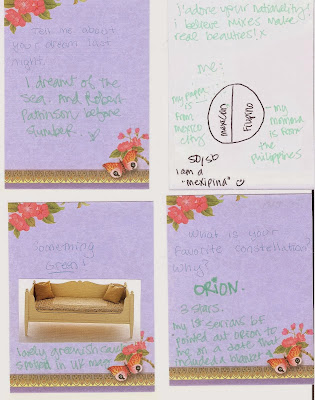 Tell me about
your dream last
night.
I dreamt of the
Sea. And Robert
Pattinson before
Slumber.
I adore your nationality!
i believe mixes make
real beauties! x
me:
my papa
is from
mexico
city
mexican
Filipino
my mamma
is from
the
Philippines
50/50
I am a
"mexipina"
Something
Green!
lovely greenish
spotted in UK mag
What is your
favorite constellation?
Why?
ORION.
3 stars.
my 1st serious bf
pointed out orion to
me on a date that
included a blanket